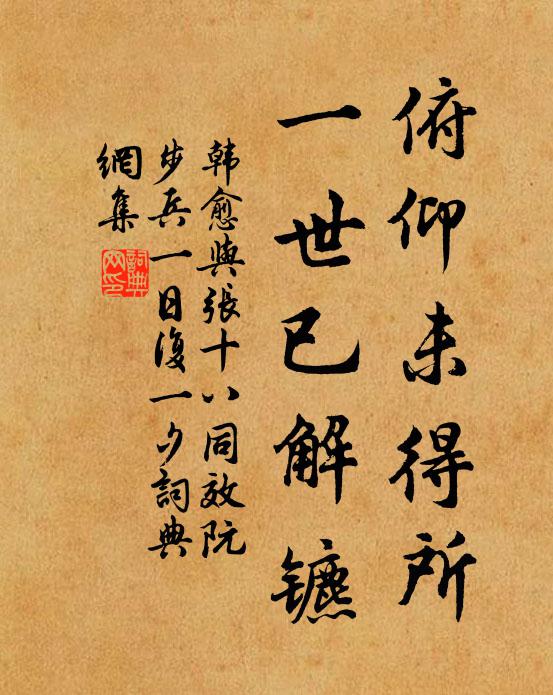 俯仰未得所
一世已解镳
韩愈與張十八同效阮
步兵一日復一夕詞典
網集
詞典網印